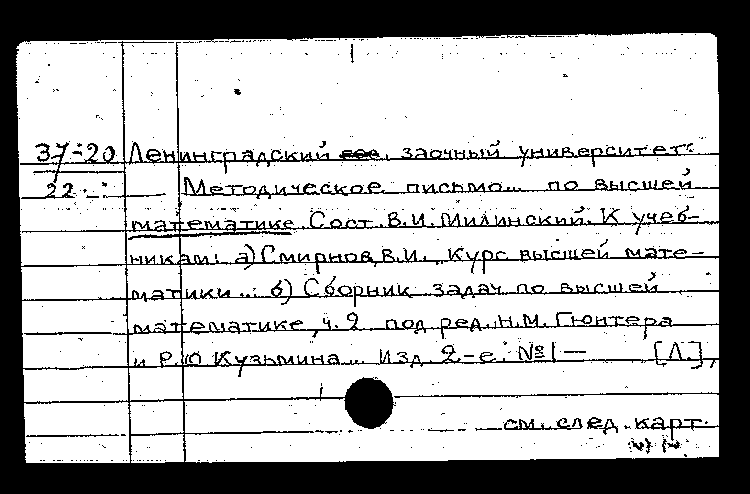 37-20 Ленинградский гос. заочный университет.
22. Методическое письмо... по высшей
математике. Сост. В.И. Милинский. К учеб-
никам: а) Смирнов, В.И., Курс высшей мате-
матики...: б) Сборник задач по высшей
математике, ч. 2 под ред. Н.М. Гюнтера
и Р.О. Кузьмина... Изд. 2-е. №1 — [Л.],
см. след. карт.